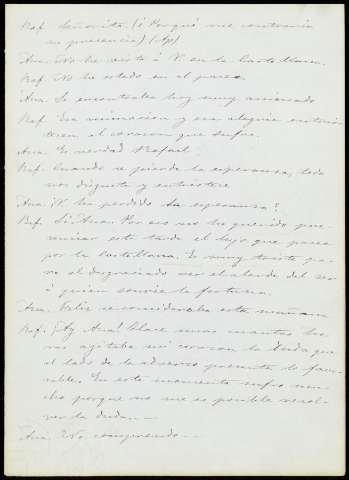 Raf. Señorita. (¿Porqué me contraria
su presencia) (Ap)
Ana. No he visto á V. en la Castellana.
Raf. No he estado en el paseo.
Ana. Se encontraba hoy muy animado
Raf. Esa animacion y esa alegria entriste-
cen al corazon que sufre.
Ana. Es verdad Rafael.
Raf. Cuando se pierde la esperanza, todo
nos disgusta y entristece
Ana. ¿V. ha perdido la esperanza?
Raf. Si Ana. Por eso no he querido pre-
senciar esta tarde el lujo que pasea
por la Castellana. Es muy triste pa-
ra el desgraciado ver el alarde del ser
á quien sonrie la fortuna.
Ana. Feliz se consideraba esta mañana
Raf. ¡Ay Ana! Hace unas cuantas ho-
ras agitaba mi corazon la duda que
al lado de lo adverso presenta lo favo-
rable. En este momento sufro mu-
cho porque no me es posible resol-
ver la duda...
Ana. No comprendo...